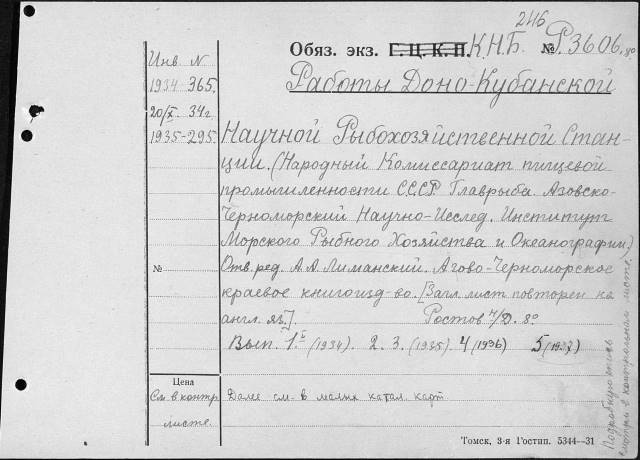 246
Обяз. экз. Г.Ц.К.П. К.Н.Б. № Р.3606. 8°
Работы Доно-Кубанской
Инв. N
1934 365.
20/X. 34 г.
1935-295.
Научной Рыбохозяйственной Стан-
ции. (Народный Комиссариат пищевой
промышленности СССР Главрыба Азовско-
Черноморский Научно-Исслед. Институт
Морского Рыбного Хозяйства и Океанографии)
№ Отв. ред. А.А. Лиманский. Азово-Черноморское
краевое книгоизд-во. [Загл. лист повторен на
англ. яз.]. Ростов н/Д. 8°
Вып. 1. (1934). 2. 3. (1935). 4 (1936) 5 (1937)
Цена
См. в контр.
листе.
Далее см. в малых катал. карт
Подробную опись
смотри в контрольном листе.
Томск, 3-я Гостип. 5344—31